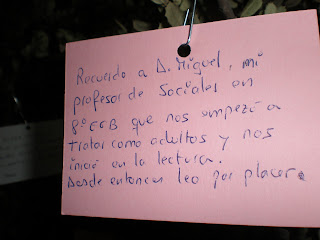 Recuerdo a D. Miguel, mi
profesor de Sociales en
8º EGB que nos empezó a
tratar como adultos y nos
inició en la lectura.
Desde entonces leo por placer.